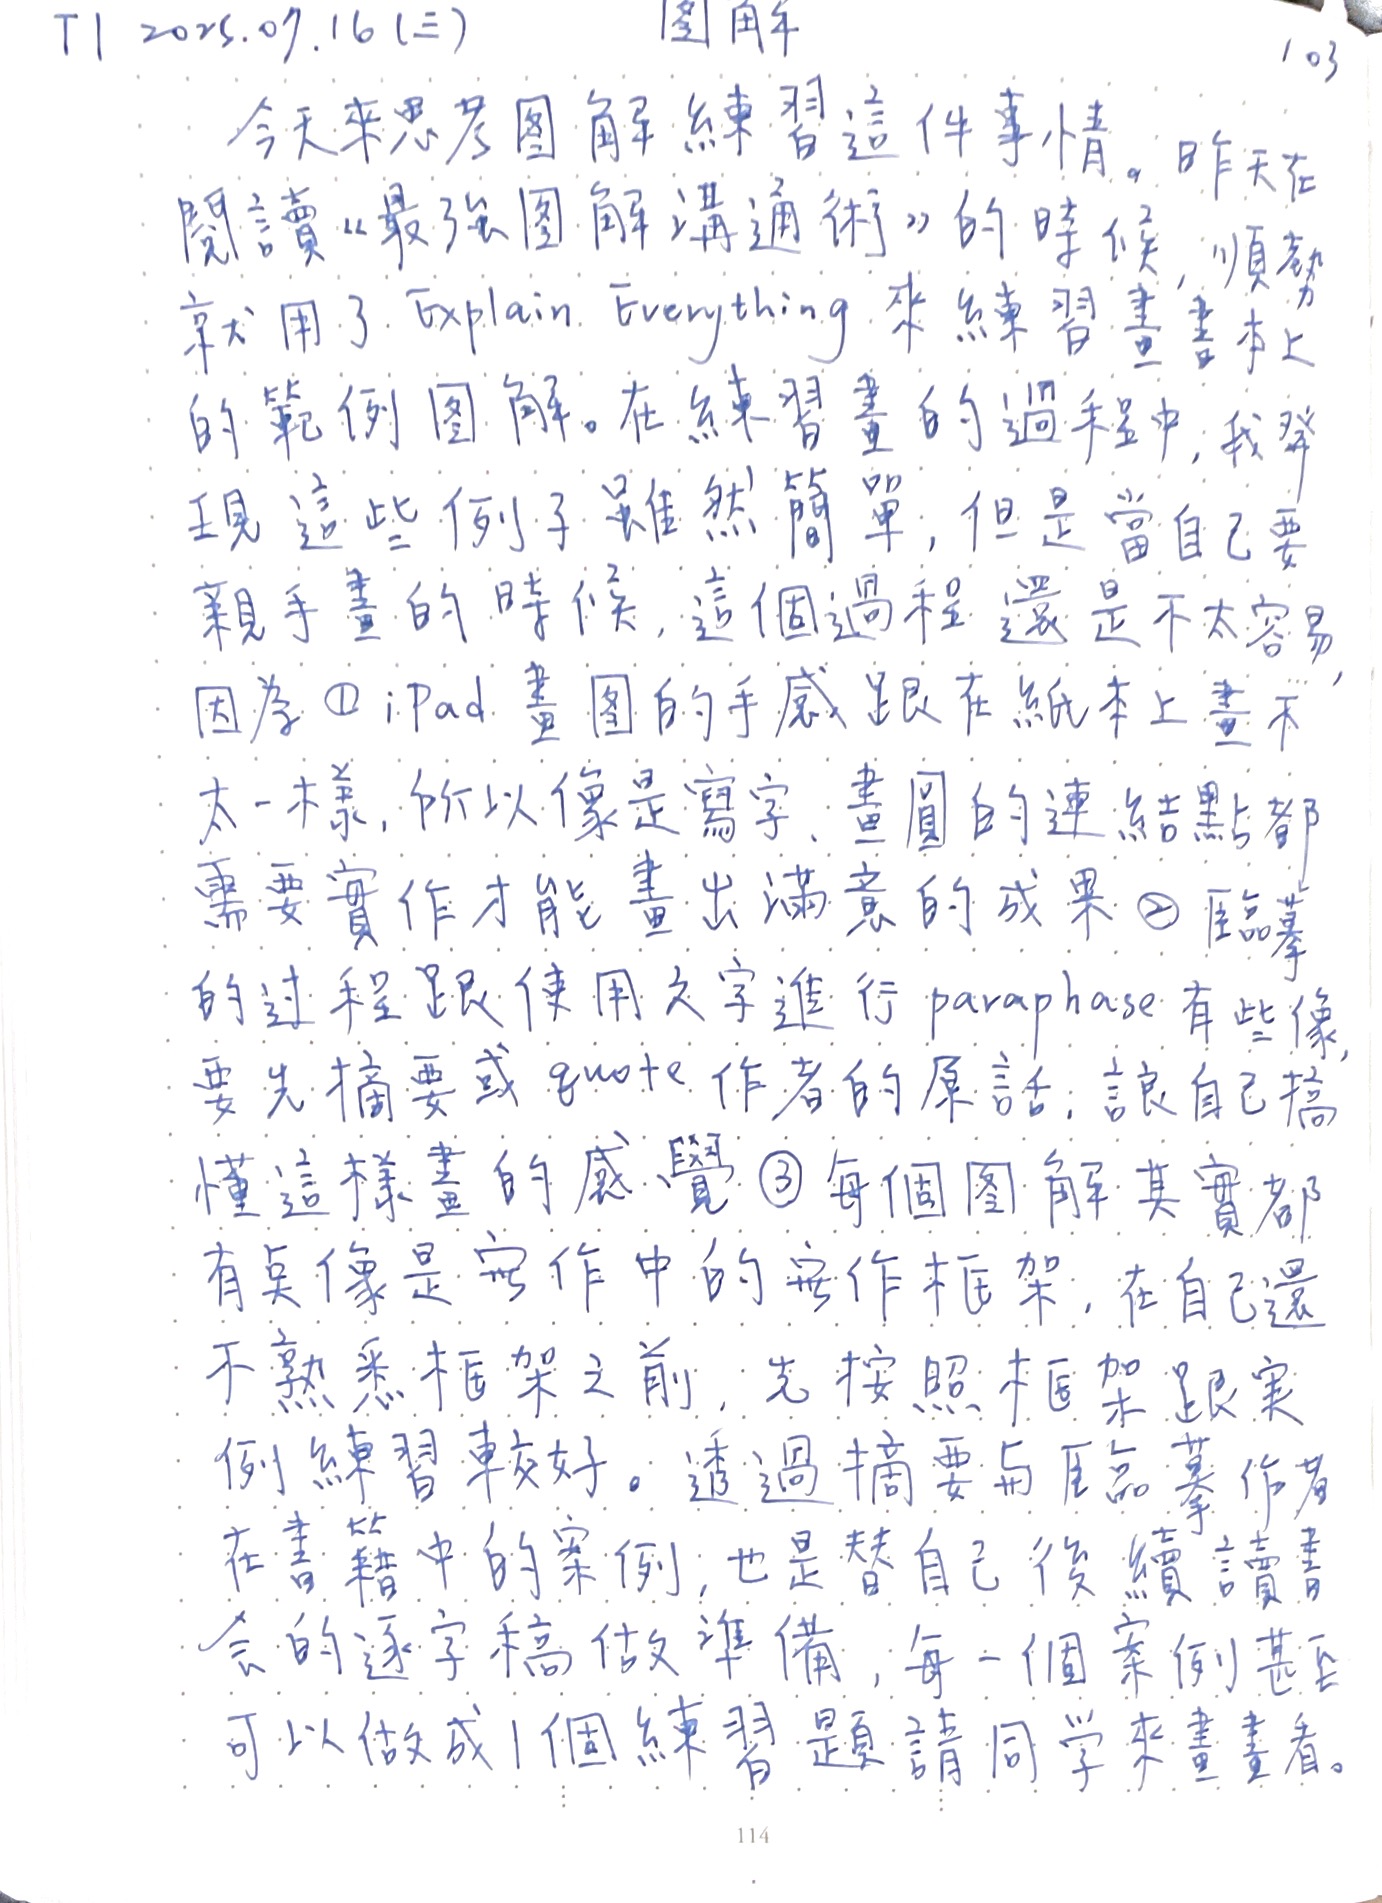 T1 2025.07.16(三) 図解 103
今天來思考図解練習這件事情。昨天在
閱讀《最強図解溝通術》的時候,順勢
就用了 Explain Everything 來練習畫書本上
的範例図解。在練習畫的過程中,我發
現這些例子雖然簡單,但是當自己要
親手畫的時候,這個過程還是不太容易,
因為①iPad畫図的手感跟在紙本上畫不
太一樣,所以像是寫字、畫圓的連結點都
需要實作才能畫出滿意的成果②臨摹
的过程跟使用文字進行paraphase有些像,
要先摘要或quote作者的原話,讓自己搞
懂這樣畫的感覺③每個図解其實都
有点像是寫作中的寫作框架,在自己還
不熟悉框架之前,先按照框架跟実
例練習較好。透過摘要與臨摹作者
在書籍中的案例,也是替自己後續讀書
会的逐字稿做準備,每一個案例甚至
可以做成1個練習題請同学來畫畫看。
114